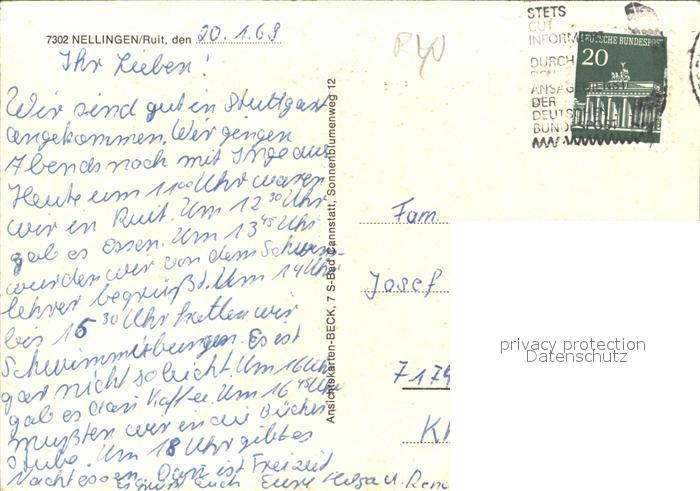 7302 NELLINGEN/Ruit, den 20.1.69
Ihr Lieben!
Wir sind gut in Stuttgart
angekommen. Wir gingen
Abends noch mit Inge aus
Heute um 11 00 Uhr waren
wir in Ruit. Um 12 30 Uhr
gab es Essen. Um 13 45 Uhr
wurden wir von dem Schwimm-
lehrer begrüßt. Um 14 Uhr
bis 15 30 Uhr hatten wir
Schwimmübungen. Es ist
gar nicht so leicht. Um 16 Uhr
gab es dan Kaffee. Um 16 45 Uhr
mußten wir in die Bücher
stube. Um 18 Uhr gibt es
Nachtessen. Dan ist Freizeit
Es grüßt Euch Eure Helga u.
Ansichtskarten-BECK, 7 S-Bad Cannstatt, Sonnenblumenweg 12
STETS
GUT
INFORM
DURCH
DEN
ANSAGEDIENST
DER
DEUTSCHEN
BUNDESPOST
DEUTSCHE BUNDESPOST
20
Fam.
Josef
privacy protection
Datenschutz